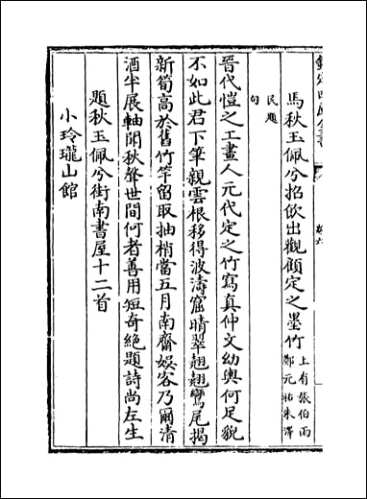 馬秋玉佩兮招飲出觀顧定之墨竹
上有張伯雨
鄭元祐朱澤
民題
句
晉代愷之工畫人元代定之竹寫真仲文幼輿何足貌
不如此君下筆親雲根移得波濤窟晴翠翹翹鸞尾揭
新筍高於舊竹竿留取抽梢當五月南齋娛客乃爾清
酒半展軸聞秋聲世間何者善用短奇絶題詩尚左生
題秋玉佩兮街南書屋十二首
小玲瓏山館